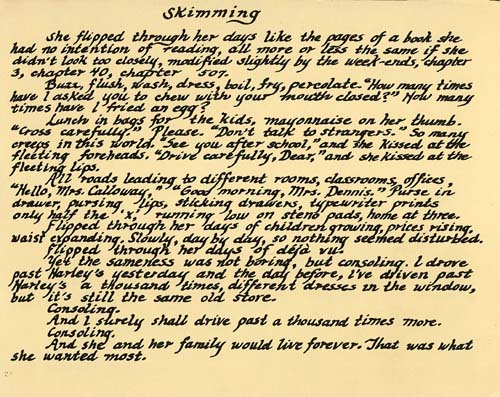 Skimming
She flipped through her days like the pages of a book she
had no intention of reading, all more or less the same if she
didn't look too closely, modified slightly by the week-ends, chapter
3, chapter 40, chapter 507.
Buzz, flush, wash, dress, boil, fry, percolate. "How many times
have I asked you to chew with your mouth closed?" How many
times have I fried an egg?
Lunch in bags for the kids, mayonnaise on her thumb.
"Cross carefully." Please. "Don't talk to strangers." So many
creeps in this world. "See you after school," and she kissed at the
fleeting foreheads. "Drive carefully, Dear," and she kissed at the
fleeting lips.
All roads leading to different rooms, classrooms, offices,
"Hello, Mrs. Calloway," "Good morning, Mrs. Dennis." Purse in
drawer, pursing lips, sticking drawers, typewriter prints
only half the 'x,' running low on steno pads, home at three.
Flipped through her days of children growing, prices rising,
waist expanding. Slowly, day by day, so nothing seemed disturbed.
Flipped through her days of déjà vu.
Yet the sameness was not boring, but consoling. I drove
past Harley's yesterday and the day before, I've driven past
Harley's a thousand times, different dresses in the window,
but it's still the same old store.
Consoling.
And I surely shall drive past a thousand times more.
Consoling.
And she and her family would live forever. That was what
she wanted most.